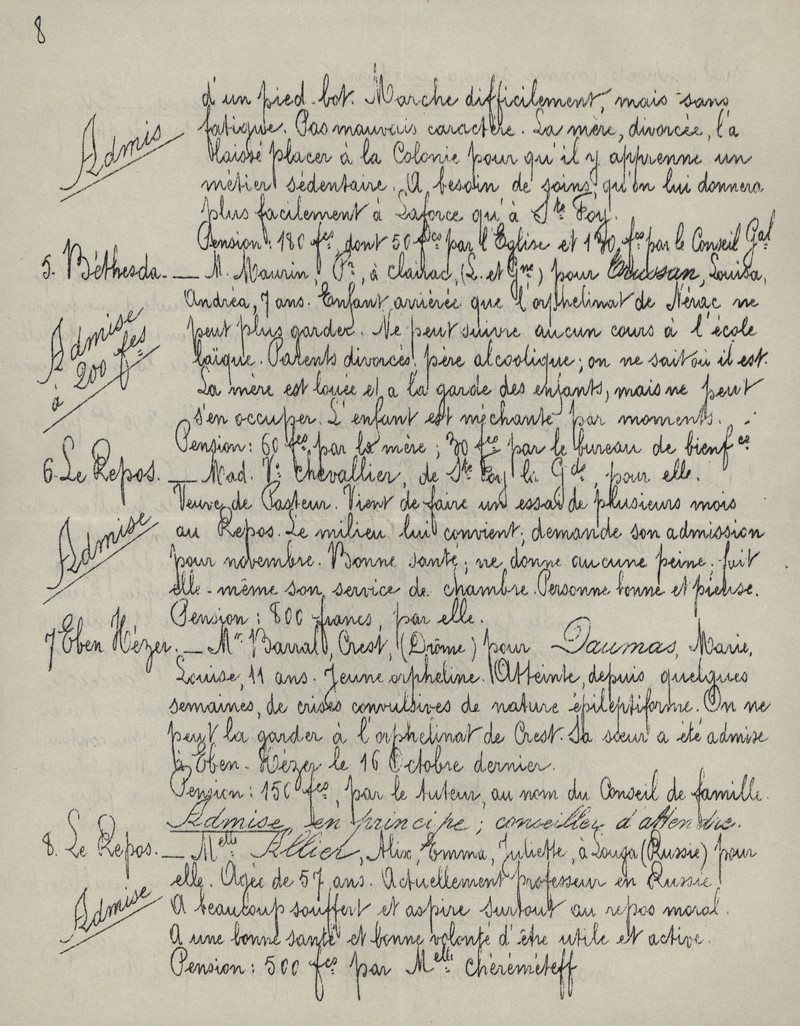 8
d'un pied-bot. Marche difficilement, mais sans
Admis
fatigue. Pas mauvais caractère. La mère, divorcée, l'a
laissé placer à la Colonie pour qu'il y apprenne un
métier sédentaire. A besoin de soins qu'on lui donnera
plus facilement à Laforce qu'à Ste Foy.
Pension: 180 fcs, dont 50 fcs par l'Eglise et 130 fcs par le Conseil Gal
5. Béthesda. — M. Maurin, Pr, à Clairac, (L. et Gne) pour Louisa,
Andréa, 7 ans. Enfant arriérée que l'orphelinat de Nérac ne
Admise
à 200 fcs
peut plus garder. Ne peut suivre aucun cours à l'école
laïque. Parents divorcés, père alcoolique; on ne sait où il est.
La mère est louée et a la garde des enfants, mais ne peut
s'en occuper. L'enfant est méchante par moments.
Pension: 60 fcs par la mère; 30 fcs par le bureau de bienfce
6. Le Repos. — Mad. Ve Chevallier, de Ste Foy la Gde, pour elle.
Veuve de Pasteur. Vient de faire un essai de plusieurs mois
Admise
au Repos. Le milieu lui convient; demande son admission
pour novembre. Bonne santé; ne donne aucune peine; fait
elle-même son service de chambre. Personne bonne et pieuse.
Pension: 800 francs, par elle.
7 Eben Hézer. — Mr Barral, Crest, (Drôme) pour Daumas, Marie,
Louise, 11 ans. Jeune orpheline. Atteinte, depuis quelques
semaines, de crises convulsives de nature épileptiforme. On ne
peut la garder à l'orphelinat de Crest. Sa sœur a été admise
à Eben-Hézer le 16 Octobre dernier.
Pension: 150 fcs, par le tuteur, au nom du Conseil de famille.
Admise en principe; conseiller d'attendre.
8. Le Repos. — Melle Allier, Alix, Emma, Juliette, à Louga (Russie) pour
elle. Agée de 57 ans. Actuellement professeur en Russie.
Admise
A beaucoup souffert et aspire surtout au repos moral.
A une bonne santé et bonne volonté d'être utile et active.
Pension: 500 fcs par Melle Chéréméteff